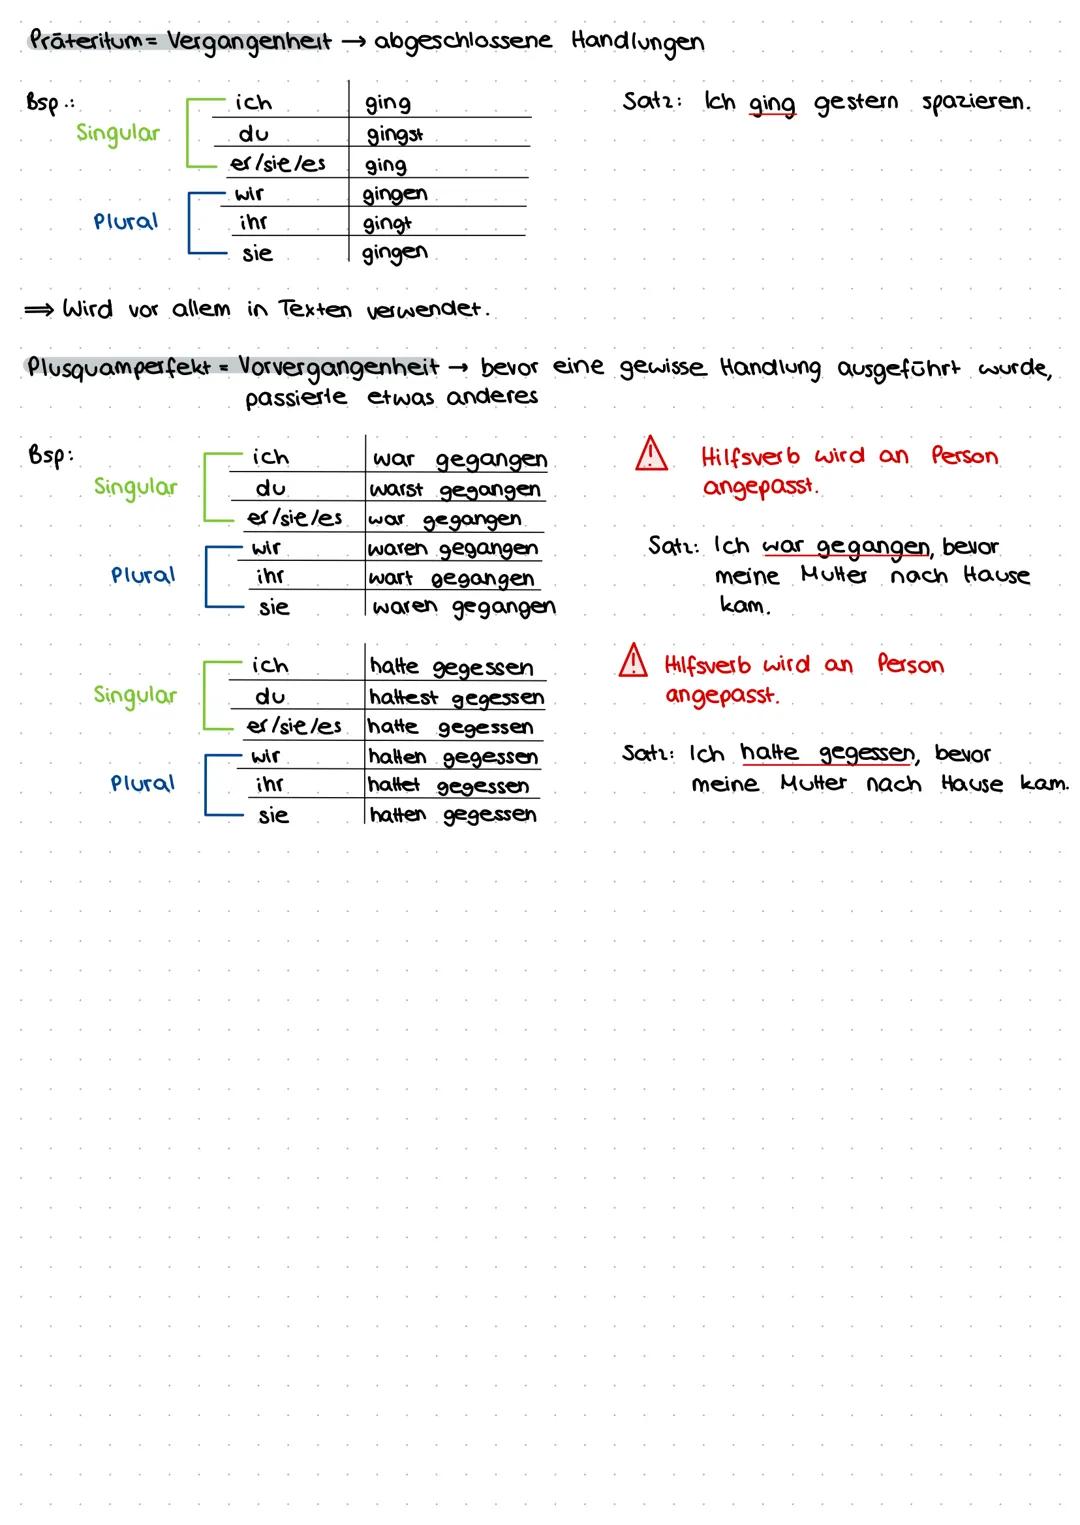 Präteritum = Vergangenheit → abgeschlossene Handlungen
Bsp.:
Singular
ich ging
du gingst
er/sie/es ging
Plural
wir gingen
ihr gingt
sie gingen
Satz: Ich ging gestern spazieren.
⇒ Wird vor allem in Texten verwendet.
Plusquamperfekt = Vorvergangenheit → bevor eine gewisse Handlung ausgeführt wurde,
passierte etwas anderes
Bsp:
Singular
ich war gegangen
du warst gegangen
er/sie/es war gegangen
Plural
wir waren gegangen
ihr wart gegangen
sie waren gegangen
⚠ Hilfsverb wird an Person
angepasst.
Satz: Ich war gegangen, bevor
meine Mutter nach Hause
kam.
Singular
ich hatte gegessen
du hattest gegessen
er/sie/es hatte gegessen
Plural
wir hatten gegessen
ihr hattet gegessen
sie hatten gegessen
⚠ Hilfsverb wird an Person
angepasst.
Satz: Ich hatte gegessen, bevor
meine Mutter nach Hause kam.